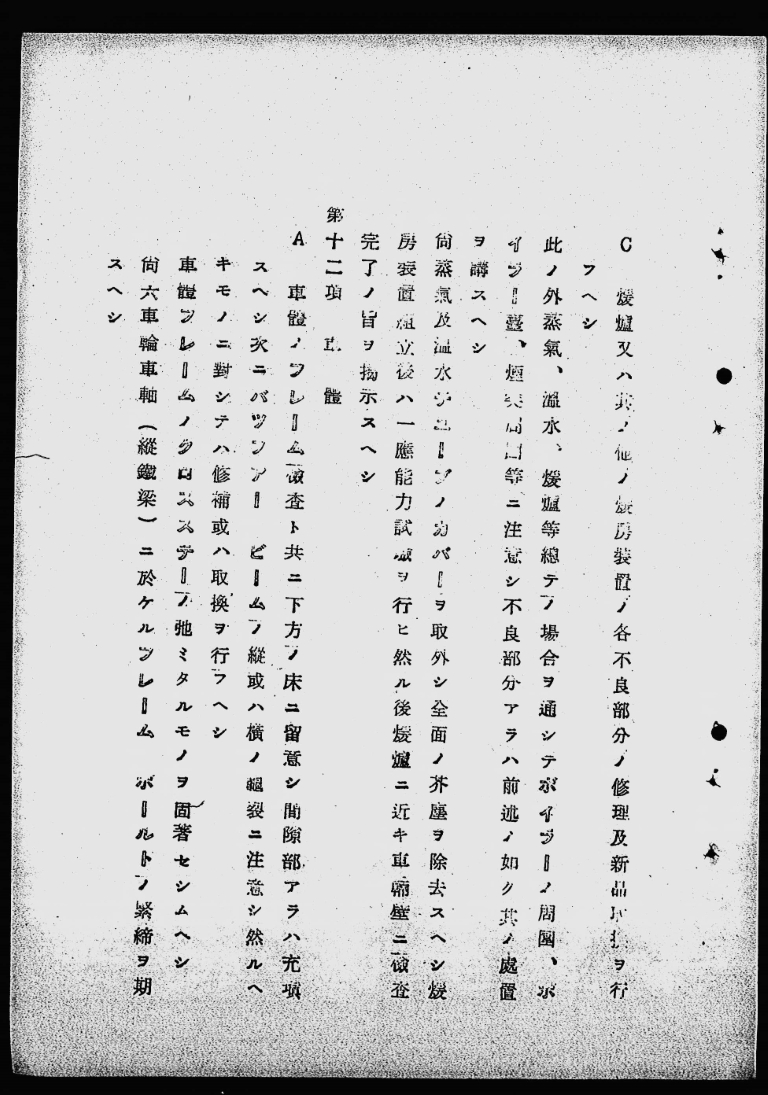 C 煖爐又ハ其ノ他ノ煖房裝置ノ各不良部分ノ修理及新品取換ヲ行
フヘシ
此ノ外蒸氣、溫水、煖爐等總テノ場合ヲ通シテボイラーノ周圍、ボ
イラー蓋、煙突周圍等ニ注意シ不良部分アラハ前述ノ如ク其ノ處置
ヲ講スヘシ
尙蒸氣及溫水チユーブノカバーヲ取外シ全面ノ芥塵ヲ除去スヘシ煖
房裝置組立後ハ一應能力試驗ヲ行ヒ然ル後煖爐ニ近キ車輛壁ニ檢査
完了ノ旨ヲ揭示スヘシ
第十二項 車體
A 車體ノフレーム檢査ト共ニ下方ノ床ニ留意シ間隙部アラハ充塡
スヘシ次ニバツフアー ビームノ縱或ハ橫ノ龜裂ニ注意シ然ルヘ
キモノニ對シテハ修補或ハ取換ヲ行フヘシ
車體フレームノクロスステーノ弛ミタルモノヲ固著セシムヘシ
尙六車輪車軸(縱鐵梁)ニ於ケルフレーム ボールトノ緊締ヲ期
スヘシ